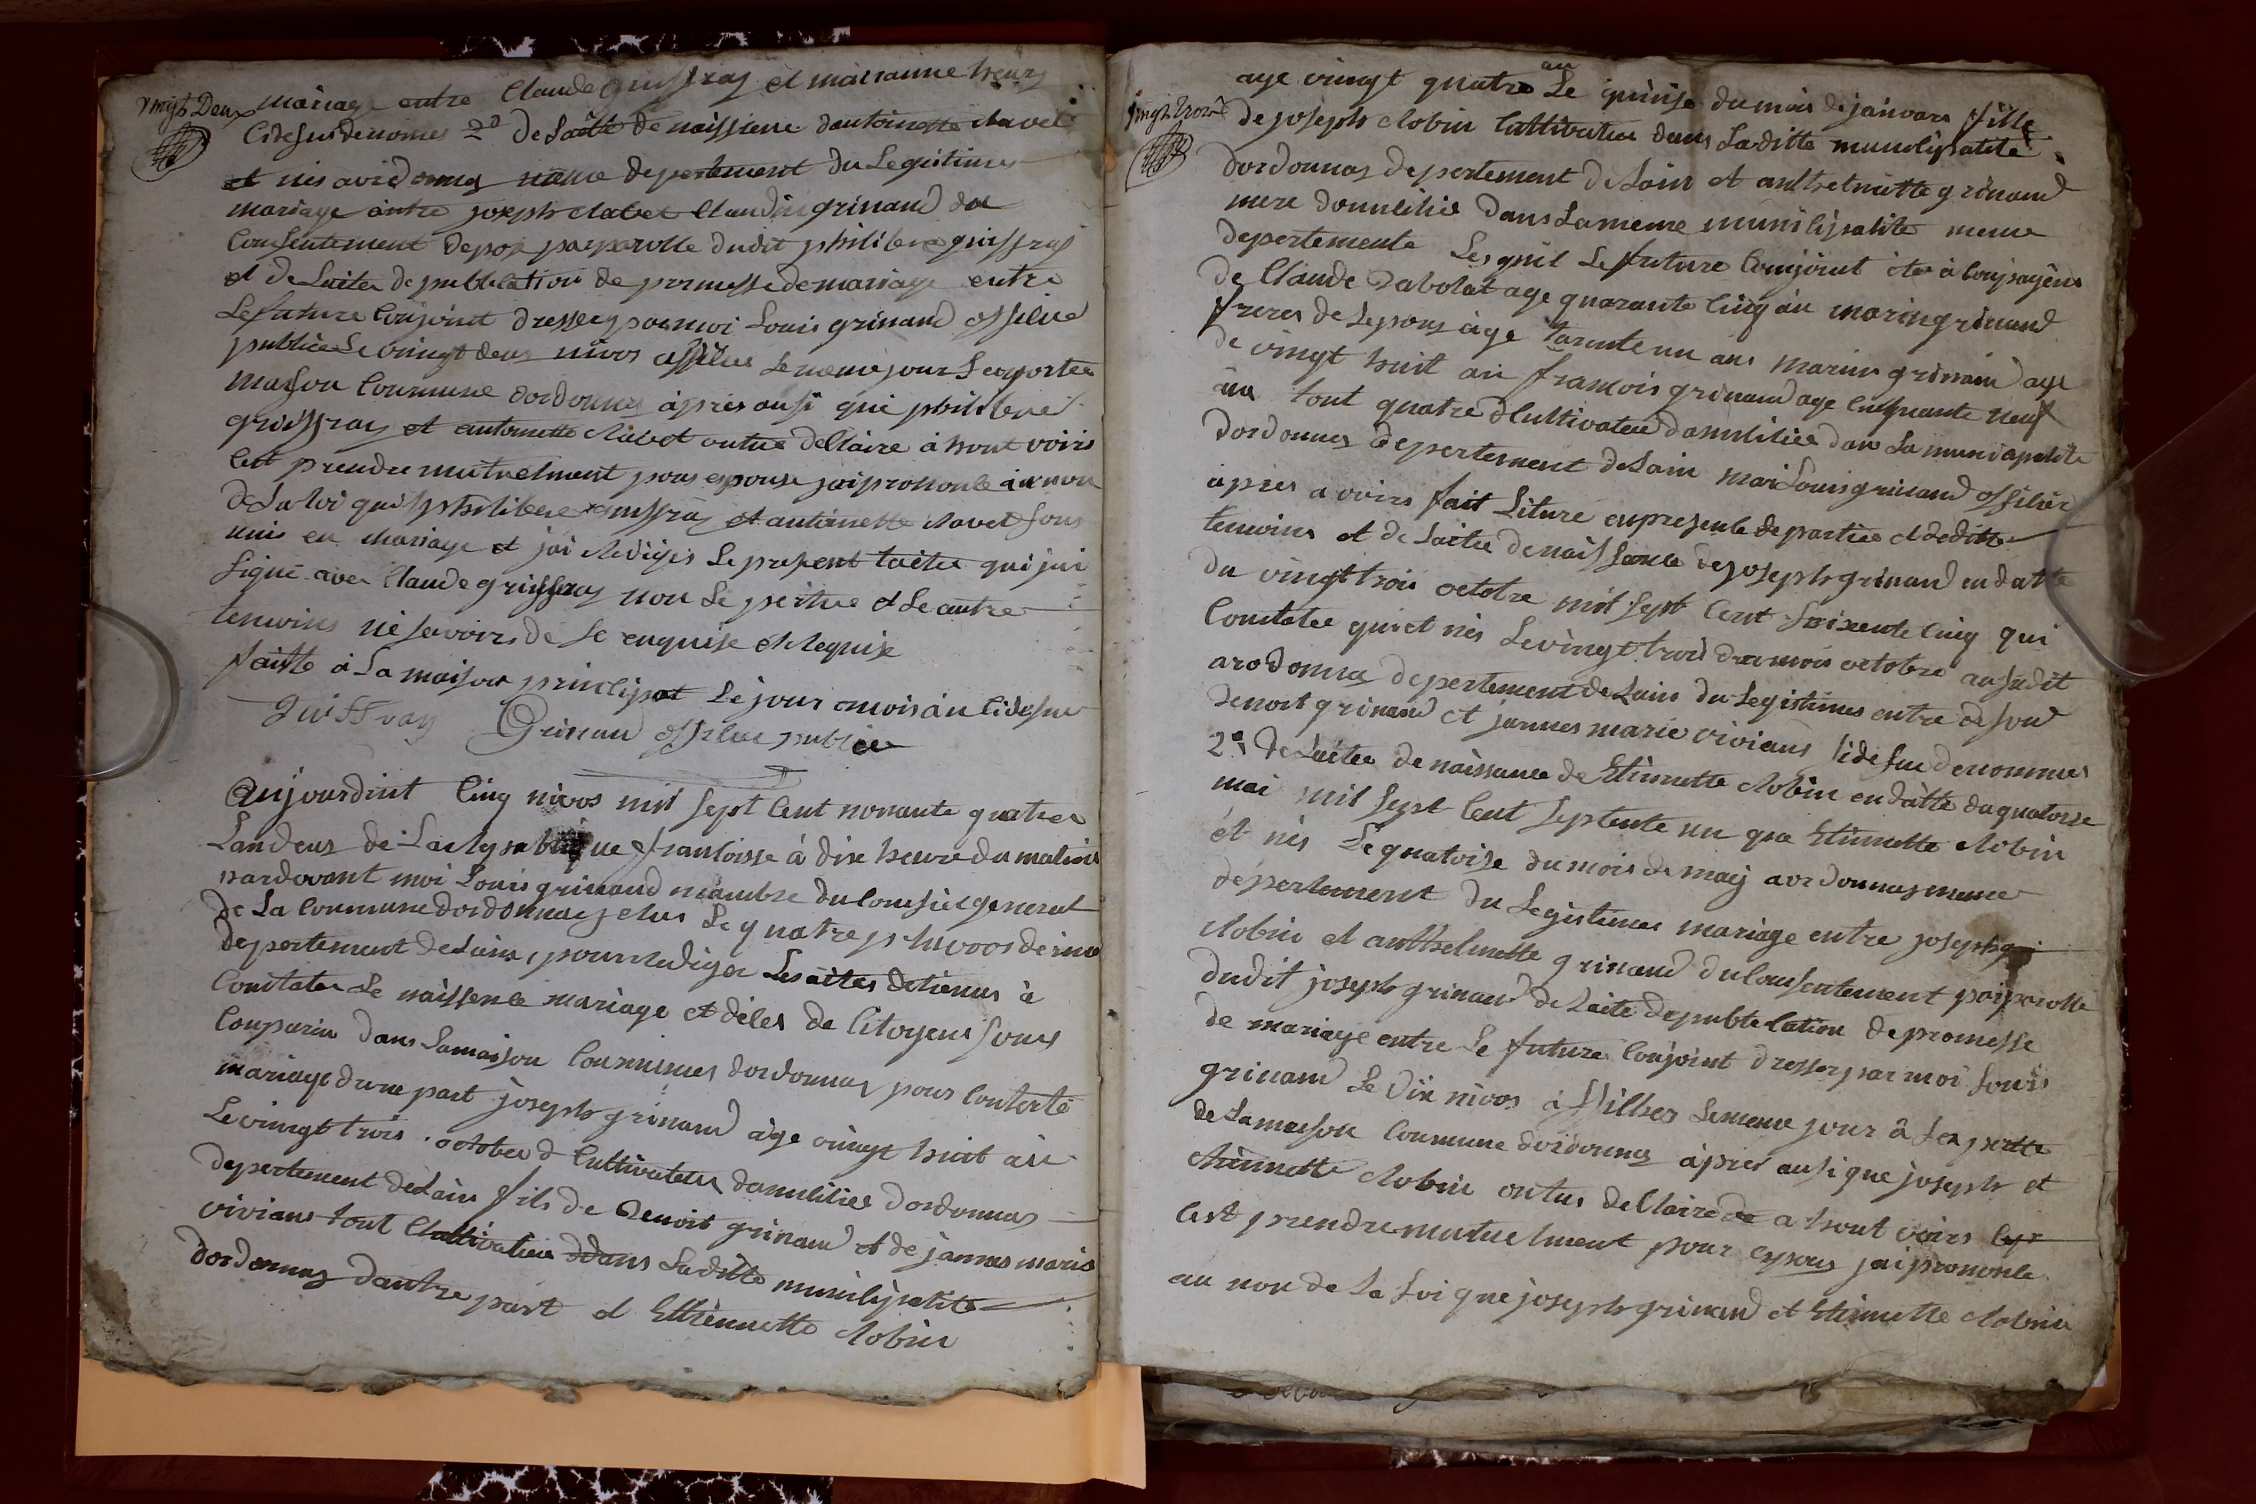 vingt Deux
mariage entre Claude guiffray et marianne
Cidesus denomes 2° De Laitte de naissiene dantoinette Navet
et nis avordonnas meme depertement du Legitimes
mariage antre joseph Navet Claudine grinand du
Consentement depos par parolle dudit philibere guiffray
et de Laitee de publication de promesse de mariage entre
Le future Conjoint dresser par moi Louis grinand officie
publice Le vingt deus nivos affilee Le meme jour Les portes
maison Commune dordonnas après ausi que philibere
guiffray et antoinette Navet ontue de Claire à hout voiris
Cest prendre mutuelment pour espouse jai prononle au nom
De La loi qui philibere guiffray et antoinette Navet sons
unis en mariage et jai Redigés Le present taitee qui jai
signé avec Claude guiffray non Le pertue et Le autre
temoins nè savoirs de Se enquise et Requise
faitte à La maison principat Le jour mois àn Cidesus
Guiffray Grinand officie publice
aujourdint Cinq nivos mil sept Cent nonante quatre
Landeus de La Republique franloisse à dix heure du matin
pardevant moi Louis grinand mambre du Conseil general
De La Commune dordonnas elus Le quatre
depertement de Lain, pour Rediger Les aites detienus à
Constater Le naissenle mariage et déles de Citoyens sons
Conparin dans Lamaison Communes dordonnas pour Conterte
mariage dune part joseph grinand àge vingt huit àn
Levingt trois octobre d Cultivateur domilitiee dordonnas
depertement de Lain fils de Benoit grinand et de jannes marie
viviant tout Cultivateur dans Laditte munilipatite
dordonnas dautre part et Ettiennette Robin
vingt trois
age vingt quatre an Le quinse du mois de janvare fille
De joseph Robin Cultivateur dans Laditte munilipatite
dordonnas depertement de Lain et anthelmette grinand
mere domiliee dans Lameme munilipalite meme
depertemente Lesquil Le future Conjoint
de Claude Rabolat age quarante Cinq àn marin grinand
freres de Lepous àge tarente un ans marin grinand age
de vingt huit an francois grinand age Cinquante neuf
ân tout quatre Cultivateur domilitiee dans La munilipalite
Dordonnas depertement de Lain moi Louis grinand officier
àpres avoirs fait Liture enpresenle de partiee et dedite
temoins et de Laitee denaissance de joseph grinand en datte
du vingt trois octobre mil sept Cent soixente Cinq qui
Constatee quiet nès Levingt trois du mois octobre ausudit
avordonnas depertement de Lain du Legistimes entre
Benoit grinand et jannes marie viviants Cidesus denommes
2° de Laitee de naissance de Etiennette Robin en dàtte du quatorse
mai mil sept Cent septente un que Etiennette Robin
èt nès Le quatoise du mois de maij avordonnas meme
depertement du Legistimes mariage entre joseph
Robin et anthelmette grinand du Consentement par parolle
dudit joseph grinand de Laite de publication de promesse
de mariage entre Le future Conjoint dresser par moi Louis
grinand Le dix nivos àffilhes Lememe jour à La portte
de Lamaison Commune dordonnas àpres ausi que joseph et
Etiennette Robin ontus de Claire a hout voirs
Cest prendre mutuelment pour epous jai prononle
au non de La Loi que joseph grinand et Etiennette Robin